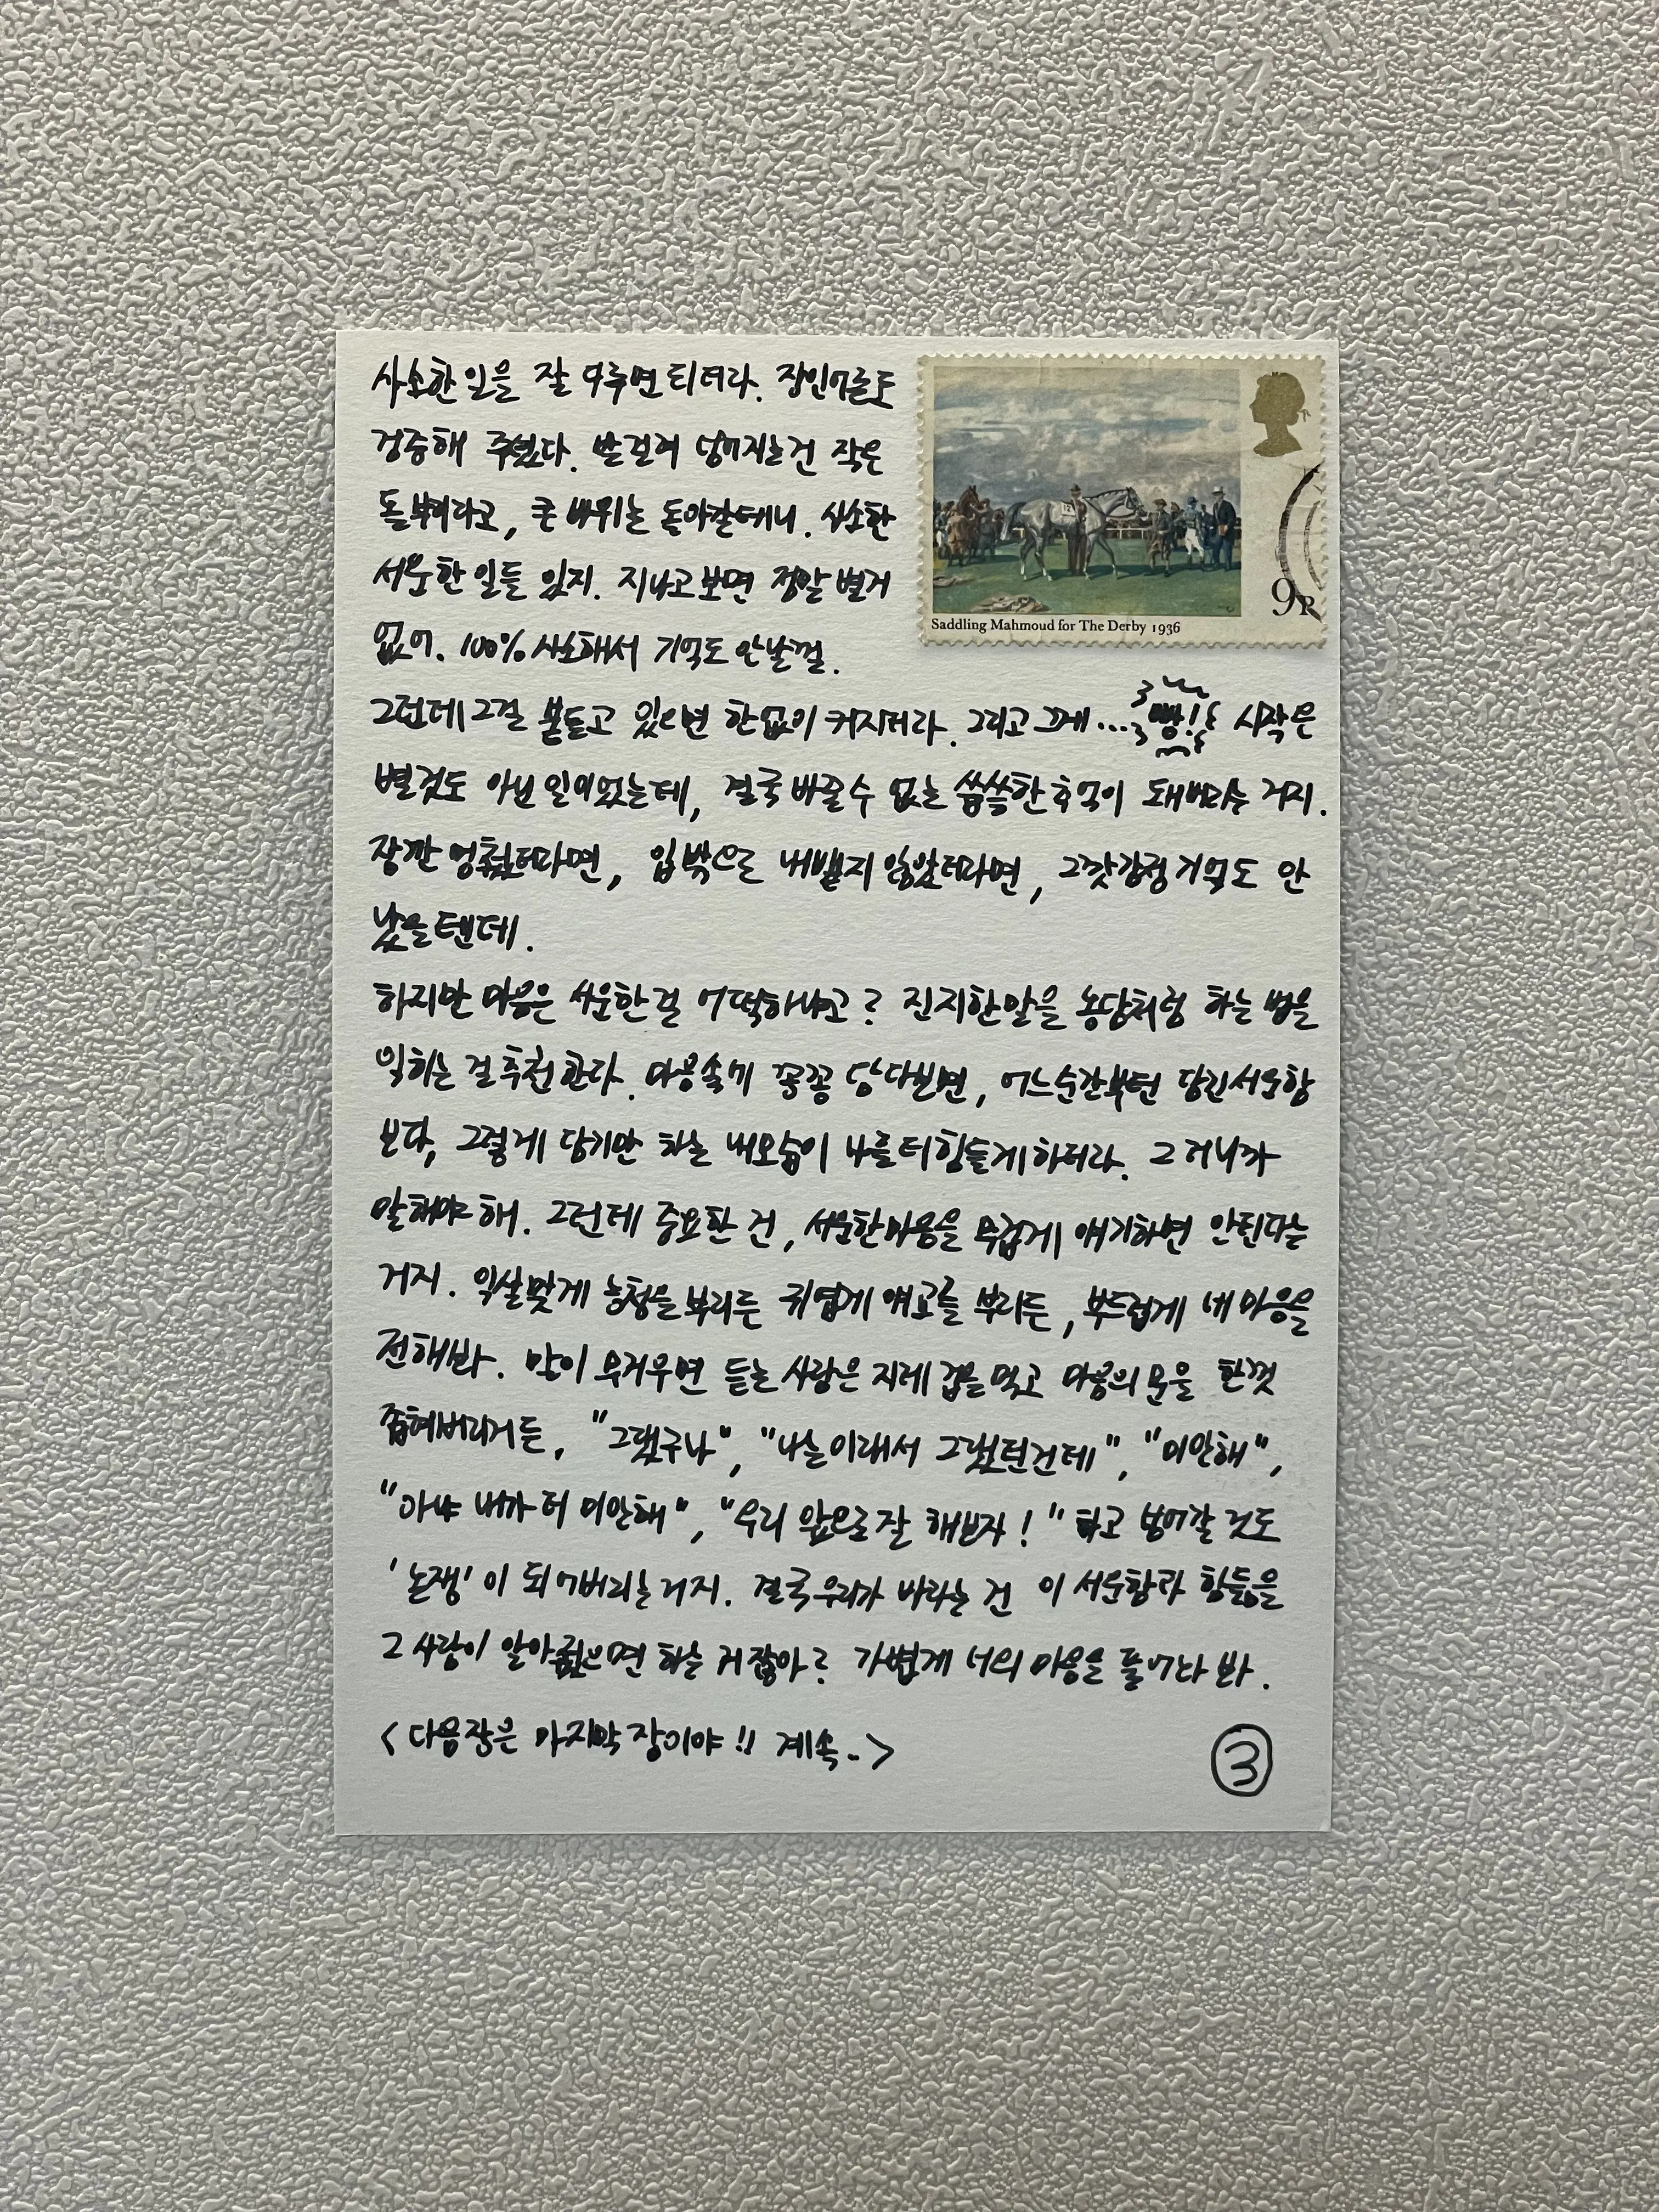 사소한 일을 잘 다루면 되더라. 장인어른도
검증해 주셨다. 발 걸려 넘어지는건 작은
돌부리라고, 큰 바위는 돌아갈테니. 사소한
서운한 일들 있지. 지나고보면 정말 별거
없어. 100% 사소해서 기억도 안날껄.
그런데 그걸 붙들고 있으면 한없이 커지더라. 그리고 그게... 빵! 시작은
별것도 아닌 일이었는데, 결국 바꿀 수 없는 씁쓸한 추억이 돼버리는 거지.
잠깐 멈췄더라면, 입 밖으로 내뱉지 않았더라면, 그깟감정 기억도 안
났을텐데.
하지만 마음은 서운한 걸 어떡하냐고? 진지한 말을 농담처럼 하는 법을
익히는 걸 추천한다. 마음속에 꽁꽁 담다보면, 어느순간부턴 담긴 서운함
보다, 그렇게 담기만 하는 내모습이 나를 더 힘들게 하더라. 그러니까
말해야 해. 그런데 중요한 건, 서운한 마음을 무겁게 얘기하면 안된다는
거지. 익살맞게 능청을 부리든 귀엽게 애교를 부리든, 부드럽게 네 마음을
전해봐. 말이 무거우면 듣는 사람은 지레 겁을 먹고 마음의 문을 한껏
좁혀버리거든, "그랬구나", "나는 이래서 그랬던건데", "미안해",
"아냐 내가 더 미안해", "우리 앞으로 잘 해보자!" 하고 넘어갈 것도
'논쟁'이 되어버리는거지. 결국 우리가 바라는 건 이 서운함과 힘듦을
그 사람이 알아줬으면 하는 거잖아? 가볍게 너의 마음을 풀어놔 봐.
<다음장은 마지막 장이야!! 계속..>
③
Saddling Mahmoud for The Derby 1936
9P